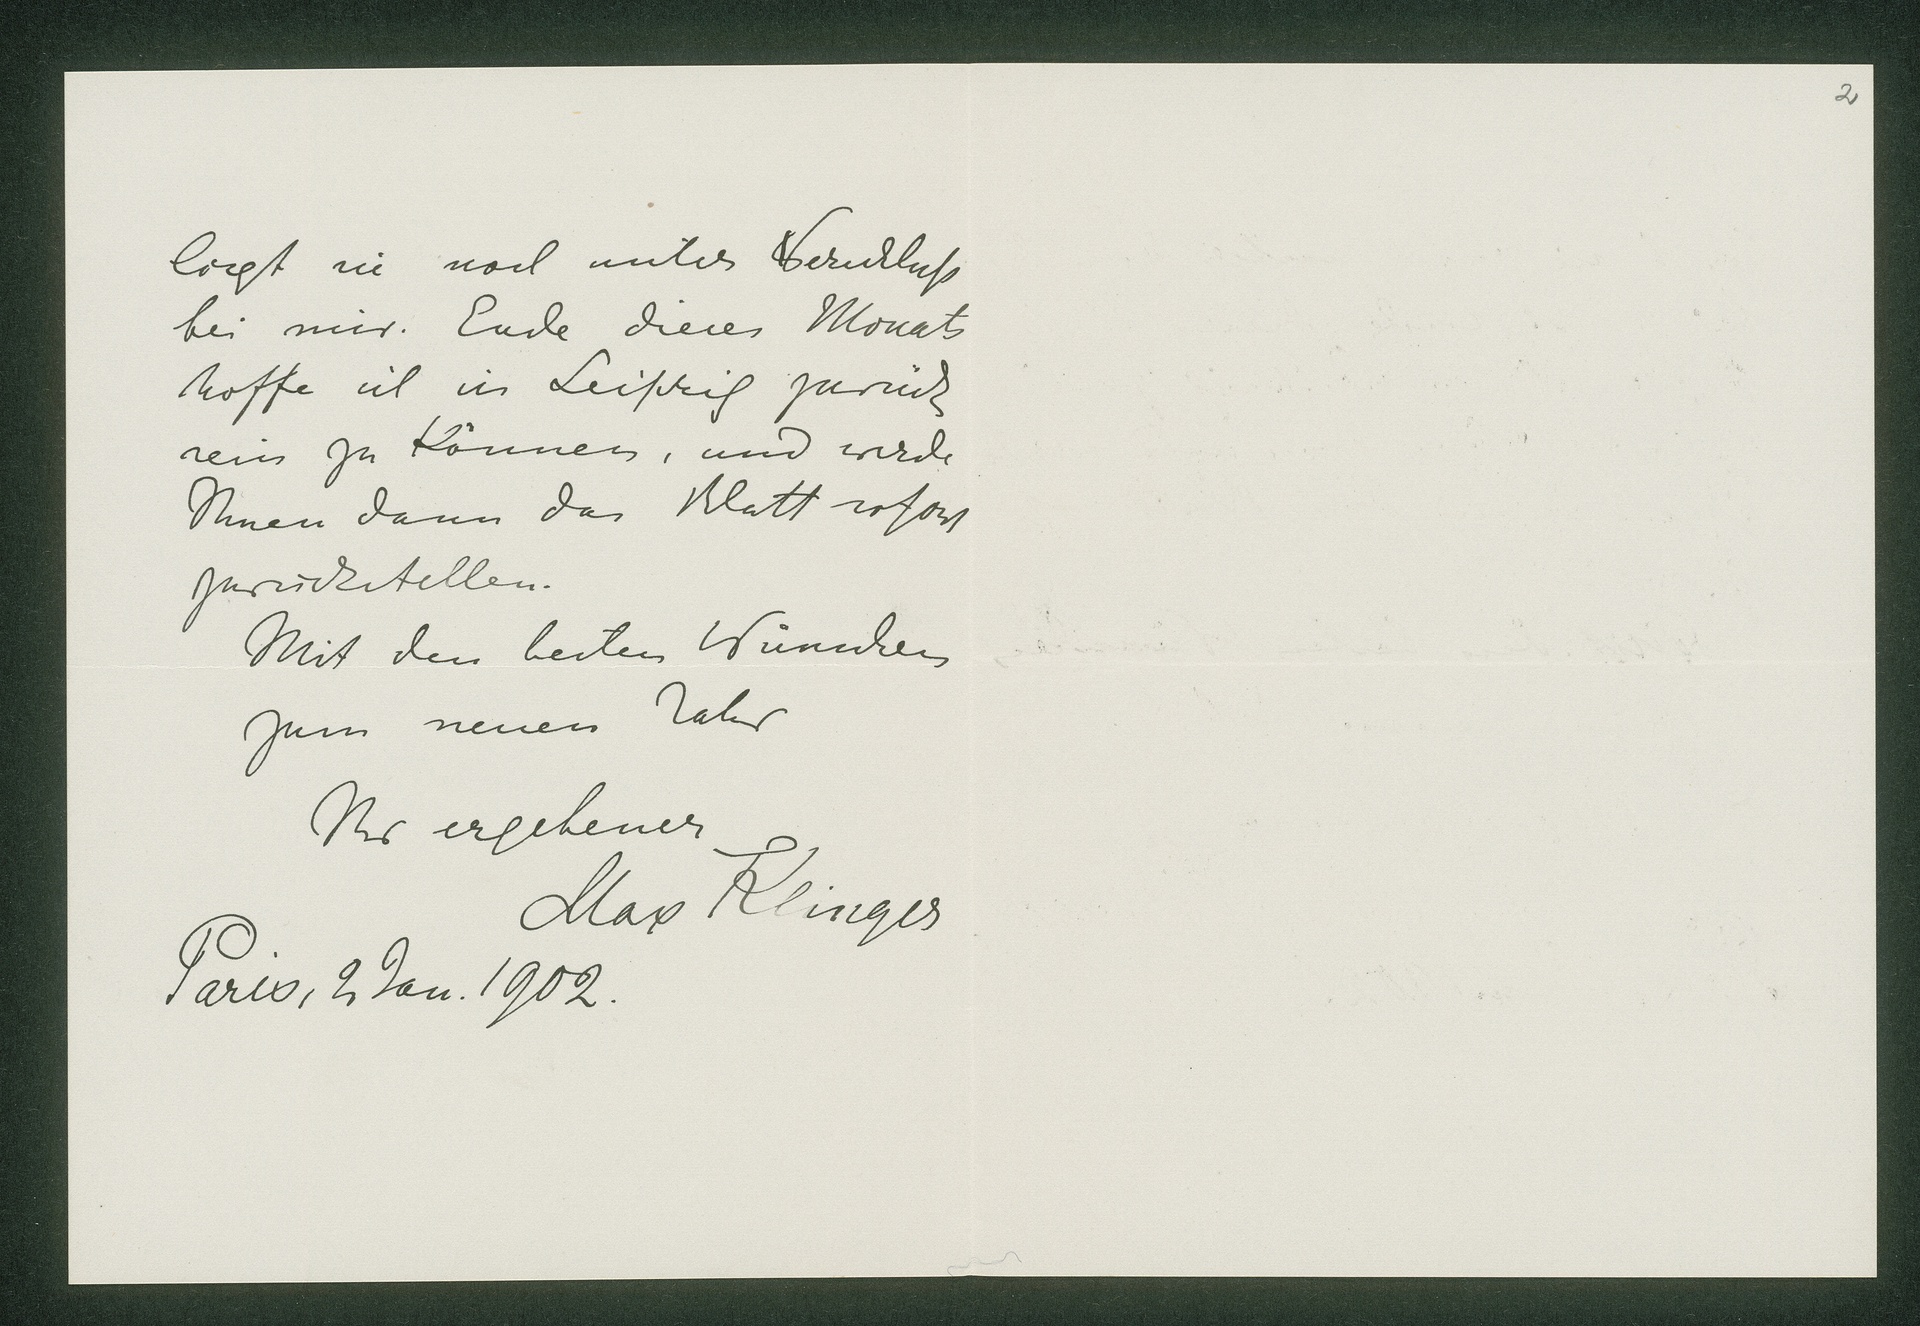 2
liegt sie noch unter Verschluß
bei mir. Ende dieses Monats
hoffe ich in Leipzig zurück
sein zu können, und werde
Ihnen dann das Blatt sofort
zurückstellen.
Mit den besten Wünschen
zum neuen Jahr
Ihr ergebener
Max Klinger
Paris, 2 Jan. 1902.